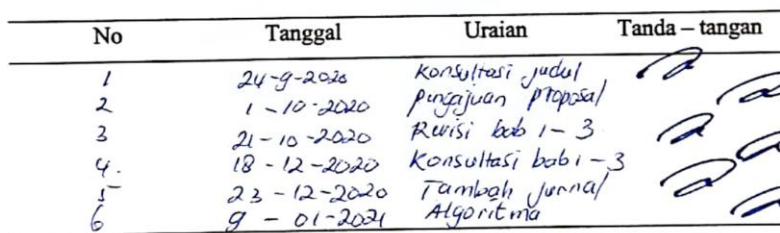 No Tanggal Uraian Tanda – tangan
1 24-9-2020 Konsultasi judul
2 1-10-2020 pengajuan proposal
3 21-10-2020 Revisi bab 1-3
4. 18-12-2020 Konsultasi bab 1-3
5 23-12-2020 Tambah jurnal
6 9-01-2021 Algoritma